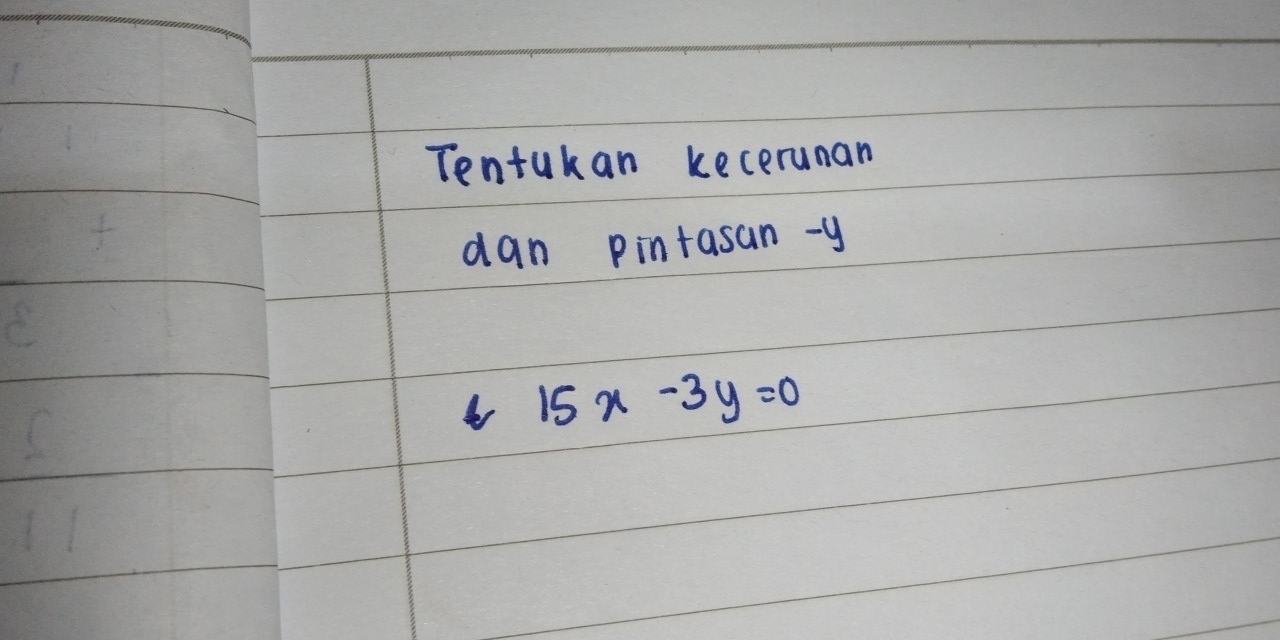 Tentukan kecerunan
dan pintasan -y
15x -3y =0